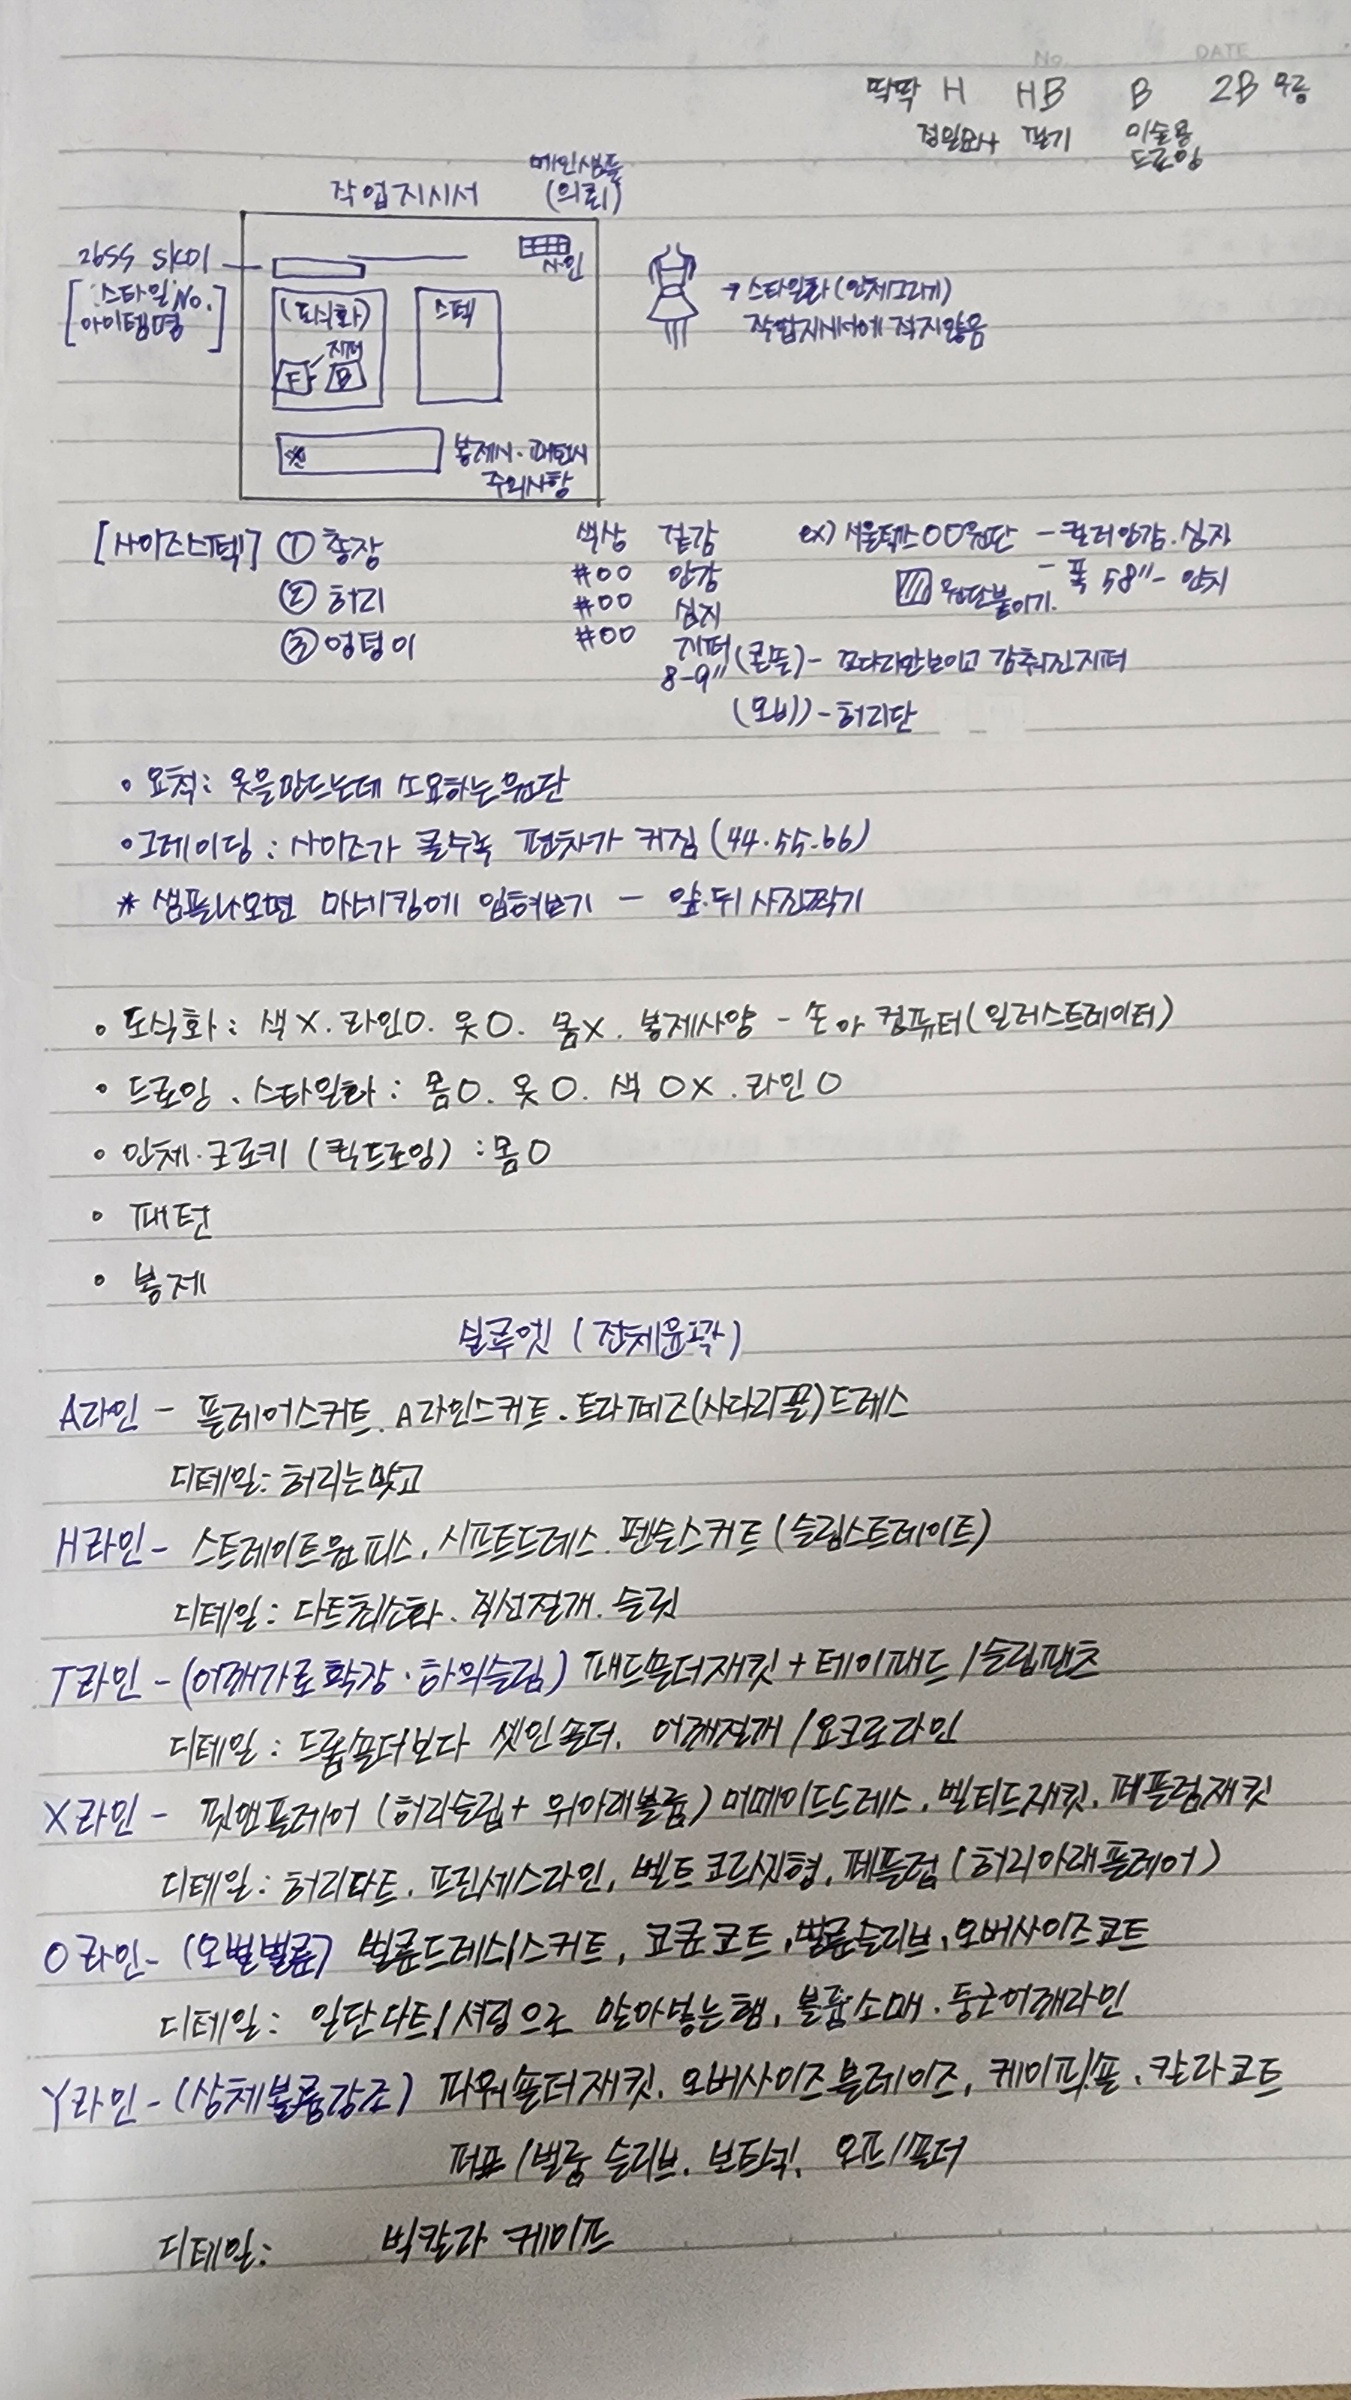 No. DATE
딱딱 H HB B 2B 무름
정밀묘사 필기 미술용
드로잉
메인샘플
작업지시서 (의뢰)
26SS SK01
사인
[스타일No.
아이템명]
(도식화) 스펙
지퍼
F B
→ 스타일화(인체그리기)
작업지시서에 적지않음
봉제시·패턴시
주의사항
[사이즈스펙] ① 총장
② 허리
③ 엉덩이
색상 겉감
#00 안감
#00 심지
#00 지퍼
8-9" (콘솔) - 꼬다리만보이고 감춰진지퍼
(오비) - 허리단
ex) 서울텍스00원단 - 컬러안감.심지
원단붙이기. - 폭 58" - 인치
• 요척: 옷을만드는데 소요하는원단
• 그레이딩 : 사이즈가 클수록 편차가 커짐 (44.55.66)
* 샘플나오면 마네킹에 입혀보기 - 앞.뒤 사진찍기
• 도식화: 색X. 라인O. 옷O. 몸X. 봉제사양 - 손 or 컴퓨터(일러스트레이터)
• 드로잉 . 스타일화: 몸O. 옷O. 색 OX. 라인O
• 인체.크로키 (퀵드로잉) : 몸O
• 패턴
• 봉제
실루엣 (전체윤곽)
A라인 - 플레어스커트. A라인스커트. 트라페즈(사다리꼴)드레스
디테일: 허리는맞고
H라인 - 스트레이트원피스. 시프트드레스. 펜슬스커트(슬림스트레이트)
디테일: 다트최소화. 직선절개. 슬릿
T라인 - (어깨가로확장·하의슬림) 패드숄더재킷 + 테이퍼드/슬림팬츠
디테일: 드롭숄더보다 셋인숄더. 어깨절개/요크로라인
X라인 - 핏앤플레어 (허리슬림 + 위아래볼륨) 머메이드드레스, 벨티드재킷, 페플럼재킷
디테일: 허리다트. 프린세스라인, 벨트 코르셋형, 페플럼 (허리아래플레어)
O라인 - (오벌벌룬) 벌룬드레스/스커트, 코쿤코트, 벌룬슬리브, 오버사이즈코트
디테일: 밑단다트/셔링으로 말아넣는햄, 볼륨소매. 둥근어깨라인
Y라인 - (상체볼륨강조) 파워숄더재킷. 오버사이즈블레이즈, 케이프/숄. 칼라코트
퍼프/벌룬 슬리브. 보타이. 오프/숄더
디테일: 빅칼라 케이프